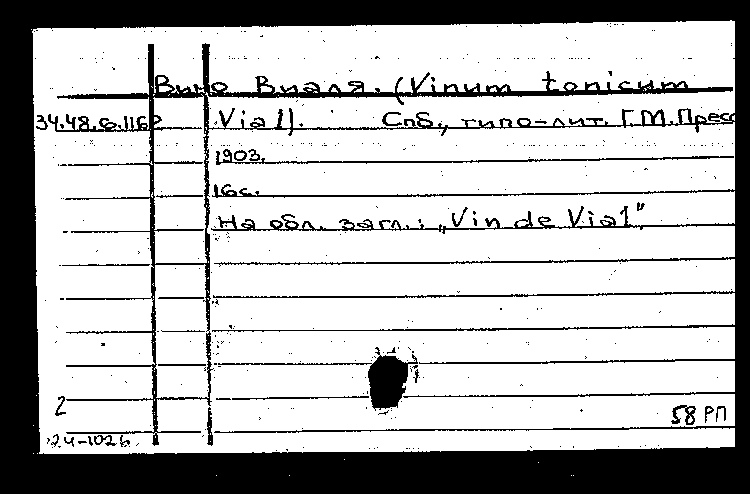 Вино Виаля. (Vinum tonicum
34.48.6.1162 Vial). Спб., типо-лит. Г.М.Пресс
1903.
16с.
На обл. загл.: „Vin de Vial"
2
58 РП
24-1026